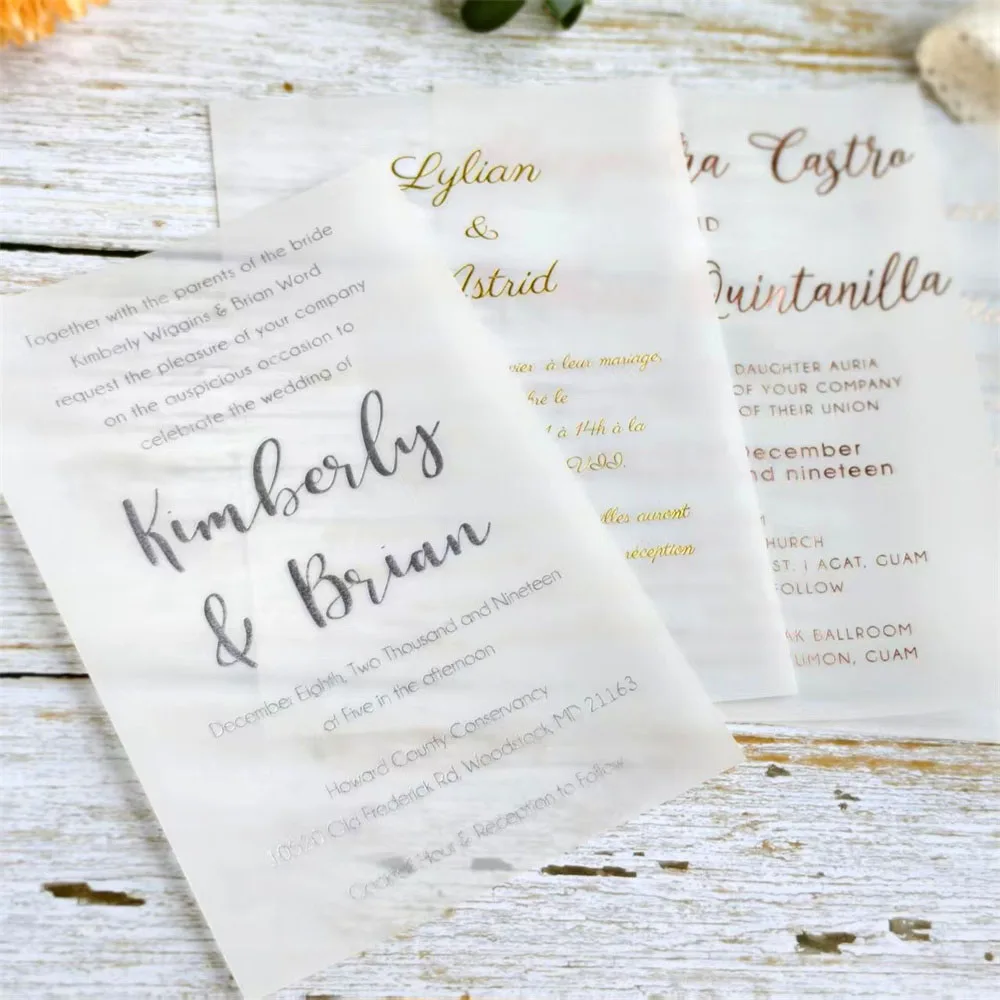 Together with the parents of the bride
Kimberly Wiggins & Brian Word
request the pleasure of your company
on the auspicious occasion to
celebrate the wedding of
Kimberly
& Brian
December Eighth, Two Thousand and Nineteen
at Five in the afternoon
Howard County Conservancy
10520 Old Frederick Rd. Woodstock MD 21163
Cocktail Hour & Reception to Follow
Lylian
&
Astrid
à leur mariage,
le
à 14h à la
VII.
auront
réception
Castro
Quintanilla
DAUGHTER AURIA
OF YOUR COMPANY
OF THEIR UNION
December
nineteen
CHURCH
ST. I AGAT, GUAM
FOLLOW
BALLROOM
GUAM